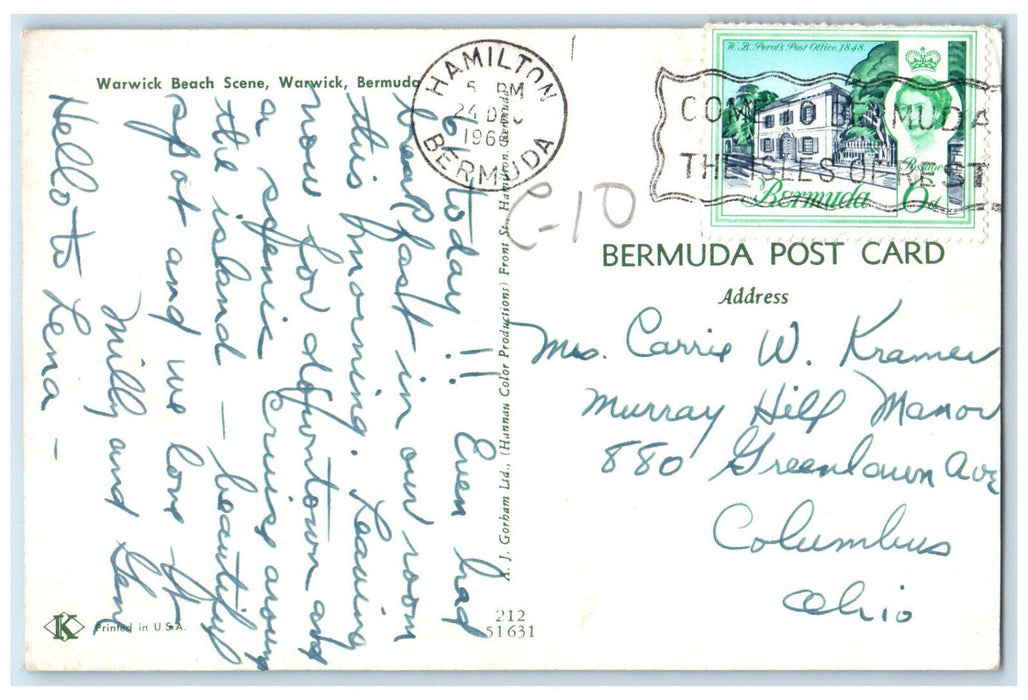 Warwick Beach Scene, Warwick, Bermuda
61 today!! Even had
breakfast in our room
this morning. Leaving
now for downtown and
a scenic cruise around
the island - beautiful
spot and we love it
Milly and
Hello to Lena -
K
Printed in U.S.A.
A. J. Gorham Ltd., (Hannau Color Productions) Front St. Hamilton, Bermuda
212
51631
HAMILTON
5 PM
24 DE
196
BERMUDA
W. B. Perot's Post Office, 1848.
Postage
Bermuda 6d
COME TO BERMUDA
THE ISLES OF REST
BERMUDA POST CARD
Address
Mrs. Carrie W. Kramer
Murray Hill Manor
880 Greenlawn Ave
Columbus
Ohio